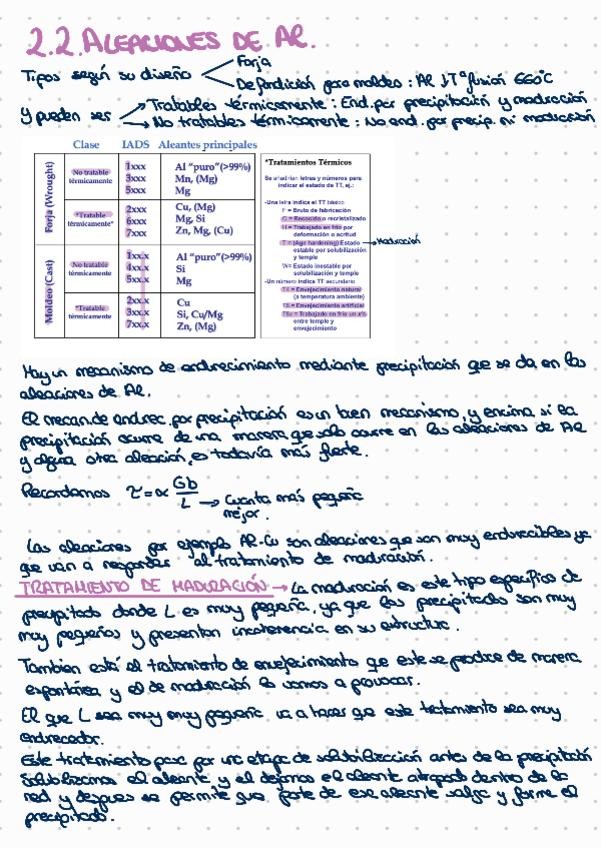 2.2. ALEACIONES DE Al.
Tipos según su diseño
Forja
De fundición para moldeo : Al ↓Tª fusión 660°C
Y pueden ser
Tratables térmicamente : End. por precipitación y maduración
No tratables térmicamente : No end. por precip. ni maduración
Clase IADS Aleantes principales
Forja (Wrought)
No tratable térmicamente
1xxx Al "puro"(>99%)
3xxx Mn, (Mg)
5xxx Mg
*Tratable térmicamente*
2xxx Cu, (Mg)
6xxx Mg, Si
7xxx Zn, Mg, (Cu)
Moldeo (Cast)
No tratable térmicamente
1xx.x Al "puro"(>99%)
4xx.x Si
5xx.x Mg
*Tratable térmicamente
2xx.x Cu
3xx.x Si, Cu/Mg
7xx.x Zn, (Mg)
*Tratamientos Térmicos
Se añadirían letras y números para
indicar el estado de TT, ej.:
-Una letra indica el TT básico
F = Bruto de fabricación
O = Recocido o recristalizado
H = Trabajado en frío por
deformación o acritud
T = (Age hardening) Estado → Maduración
estable por solubilización
y temple
W= Estado inestable por
solubilización y temple
-Un número indica TT secundario
T4 = Envejecimiento natural
(a temperatura ambiente)
T6 = Envejecimiento artificial
T8x = Trabajado en frío un x%
entre temple y
envejecimiento
Hay un mecanismo de endurecimiento mediante precipitación que se da en las
aleaciones de Al.
El mecan de endrec, por precipitación es un buen mecanismo, y encima si la
precipitación ocurre de una manera que solo ocurre en las aleaciones de Al
y alguna otra aleación, es todavía más fuerte.
Recordamos τ = α Gb/L → Cuanta más pequeña
mejor.
Las aleaciones por ejemplo Al-Cu son aleaciones que son muy endurecibles ya
que van a responder al tratamiento de maduración.
TRATAMIENTO DE MADURACIÓN → La maduración es este tipo específico de
precipitado donde L es muy pequeña, ya que los precipitados son muy
muy pequeños y presentan incoherencia en su estructura.
Tambien está el tratamiento de envejecimiento que este se produce de manera
espontánea y el de maduración lo vamos a provocar.
El que L sea muy muy pequeña va a hacer que este tratamiento sea muy
endurecedor.
Este tratamiento pasa por una etapa de solubilización antes de la precipitación
Solubilizamos el aleante y el dejamos el aleante atrapado dentro de la
red y despues se permite que parte de ese aleante salga y forme el
precipitado.